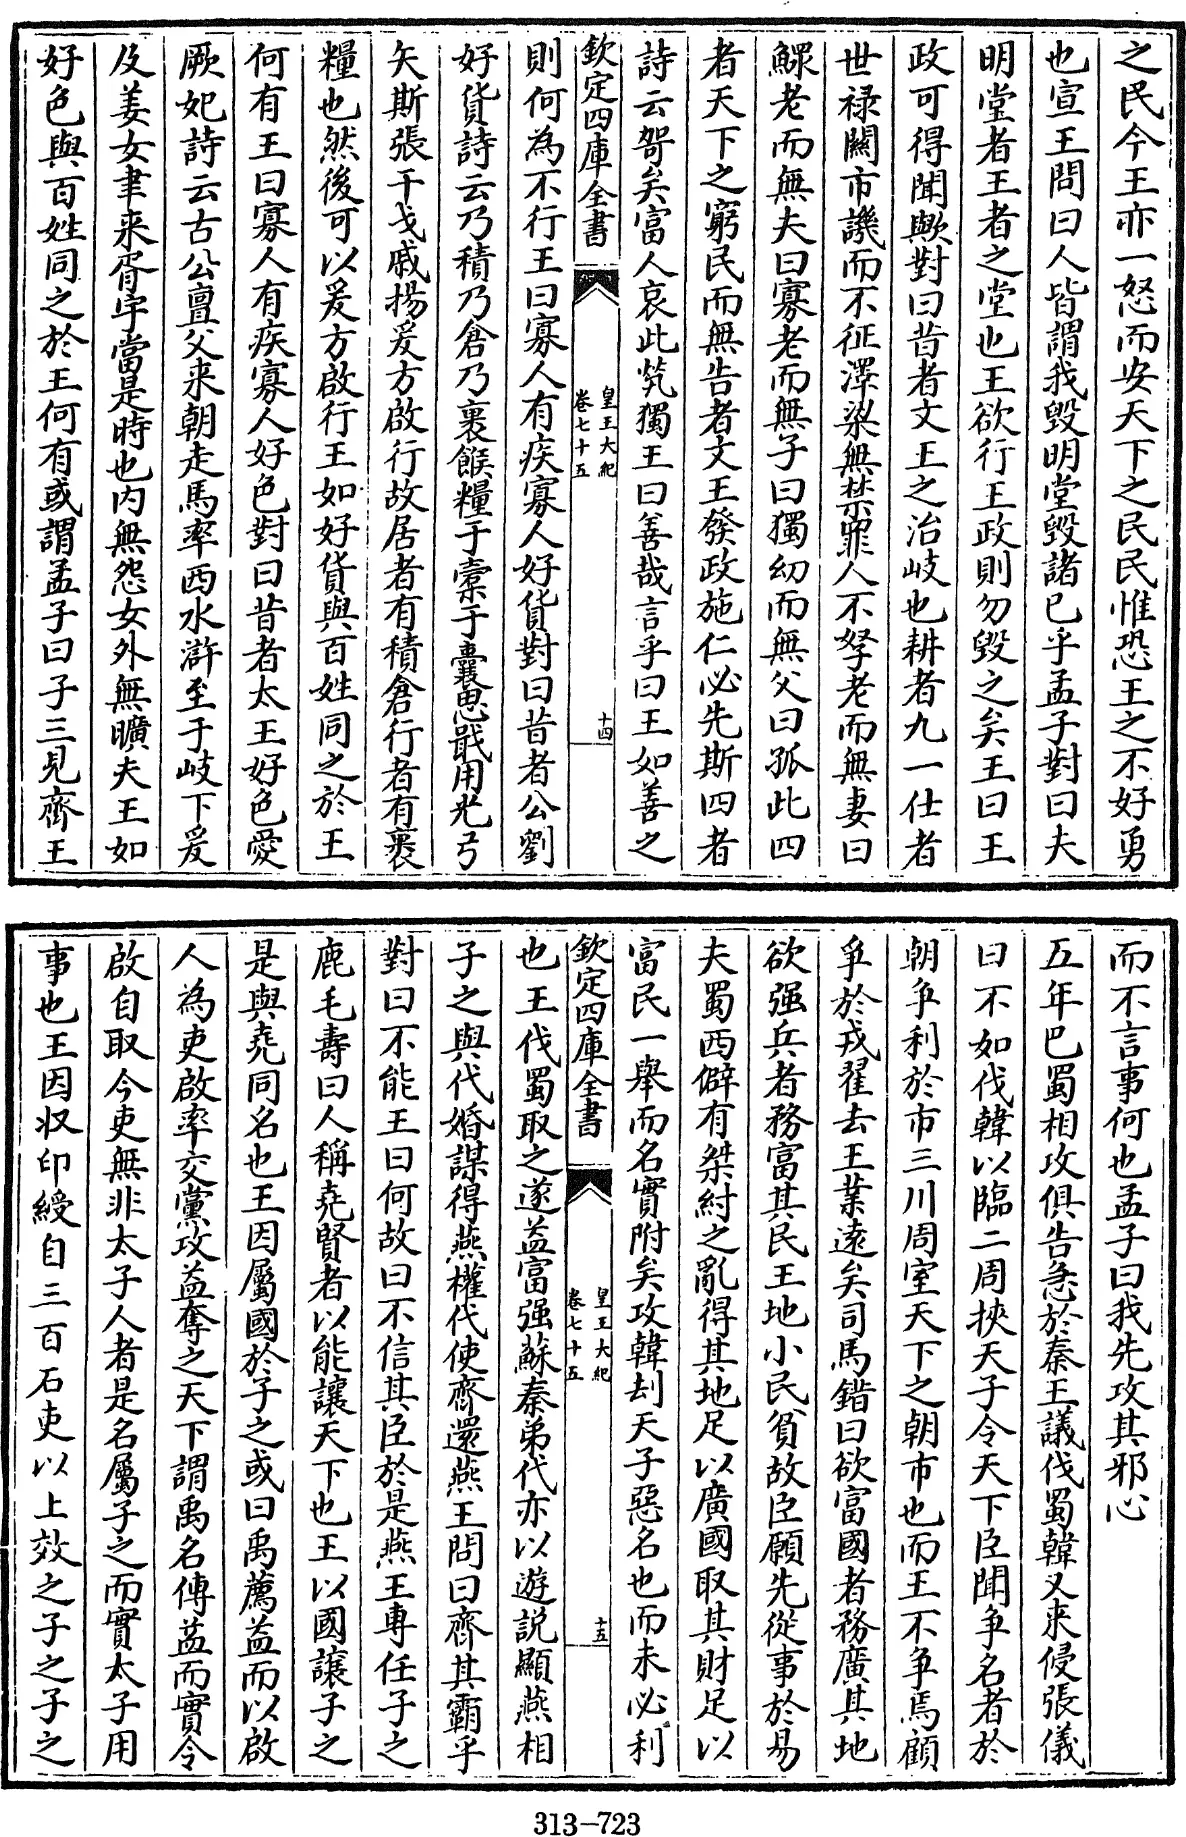 之民今王亦一怒而安天下之民民惟恐王之不好勇
也宣王問曰人皆謂我毀明堂毀諸已乎孟子對曰夫
明堂者王者之堂也王欲行王政則勿毀之矣王曰王
政可得聞歟對曰昔者文王之治岐也耕者九一仕者
世禄關市譏而不征澤梁無禁罪人不孥老而無妻曰
鰥老而無夫曰寡老而無子曰獨幼而無父曰孤此四
者天下之窮民而無告者文王發政施仁必先斯四者
詩云哿矣富人哀此煢獨王曰善哉言乎曰王如善之
欽定四庫全書
皇王大紀
卷七十五
十四
則何為不行王曰寡人有疾寡人好貨對曰昔者公劉
好貨詩云乃積乃倉乃裹餱糧于橐于囊思戢用光弓
矢斯張干戈戚揚爰方啟行故居者有積倉行者有裹
糧也然後可以爰方啟行王如好貨與百姓同之於王
何有王曰寡人有疾寡人好色對曰昔者太王好色愛
厥妃詩云古公亶父來朝走馬率西水滸至于岐下爰
及姜女聿来胥宇當是時也内無怨女外無曠夫王如
好色與百姓同之於王何有或謂孟子曰子三見齊王
而不言事何也孟子曰我先攻其邪心
五年巴蜀相攻俱告急於秦王議伐蜀韓又来侵張儀
曰不如伐韓以臨二周挾天子令天下臣聞争名者於
朝争利於市三川周室天下之朝市也而王不争焉顧
爭於戎翟去王業逺矣司馬錯曰欲富國者務廣其地
欲强兵者務富其民王地小民貧故臣願先從事於易
夫蜀西僻有桀紂之亂得其地足以廣國取其財足以
富民一舉而名實附矣攻韓刦天子惡名也而未必利
欽定四庫全書
皇王大紀
卷七十五
十五
也王伐蜀取之遂益富强蘇秦弟代亦以遊説顯燕相
子之與代婚謀得燕權代使齊還燕王問曰齊其霸乎
對曰不能王曰何故曰不信其臣於是燕王専任子之
鹿毛壽曰人稱堯賢者以能讓天下也王以國讓子之
是與堯同名也王因屬國於子之或曰禹薦益而以啟
人為吏啟率交黨攻益奪之天下謂禹名傳益而實令
啟自取今吏無非太子人者是名屬子之而實太子用
事也王因収印綬自三百石吏以上效之子之子之